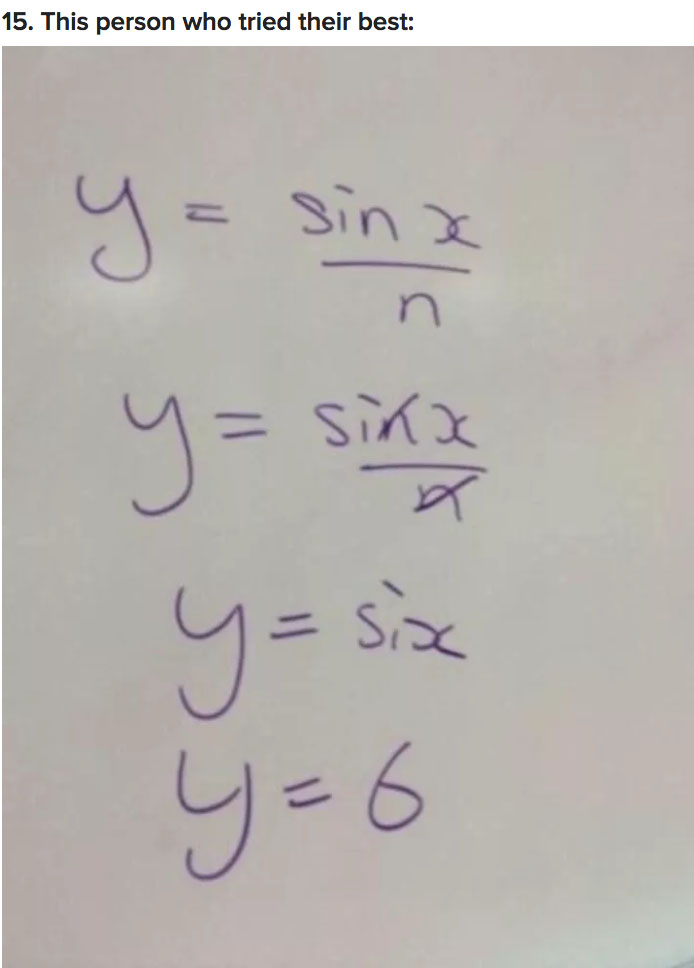 15. This person who tried their best:
y = sin x
n
y = sinx
n
y = six
y = 6